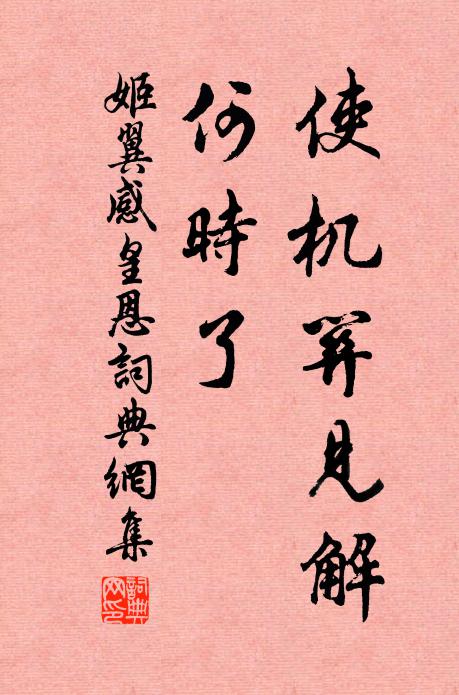 使机关見解
何時了
姬翼感皇恩詞典網集
詞典
网印